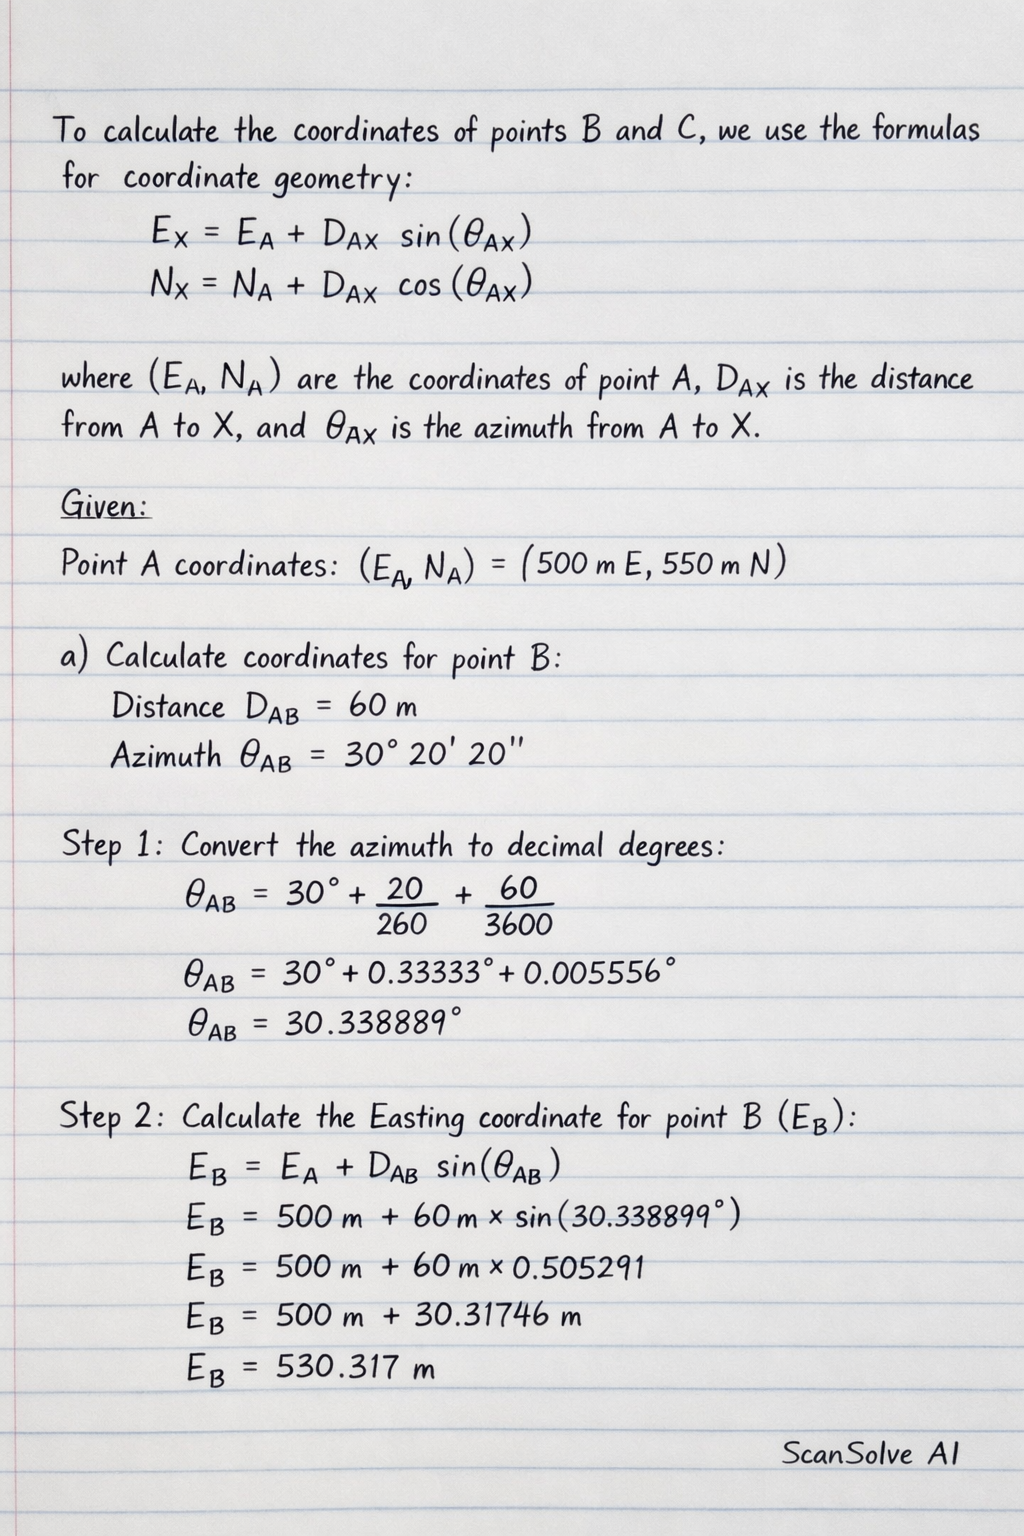 To calculate the coordinates of points B and C, we use the formulas
for coordinate geometry:
E_X = E_A + D_AX sin(θ_AX)
N_X = N_A + D_AX cos(θ_AX)
where (E_A, N_A) are the coordinates of point A, D_AX is the distance
from A to X, and θ_AX is the azimuth from A to X.
Given:
Point A coordinates: (E_A, N_A) = (500 m E, 550 m N)
a) Calculate coordinates for point B:
Distance D_AB = 60 m
Azimuth θ_AB = 30° 20' 20"
Step 1: Convert the azimuth to decimal degrees:
θ_AB = 30° + 20/260 + 60/3600
θ_AB = 30° + 0.33333° + 0.005556°
θ_AB = 30.338889°
Step 2: Calculate the Easting coordinate for point B (E_B):
E_B = E_A + D_AB sin(θ_AB)
E_B = 500 m + 60 m × sin(30.338899°)
E_B = 500 m + 60 m × 0.505291
E_B = 500 m + 30.31746 m
E_B = 530.317 m
ScanSolve AI